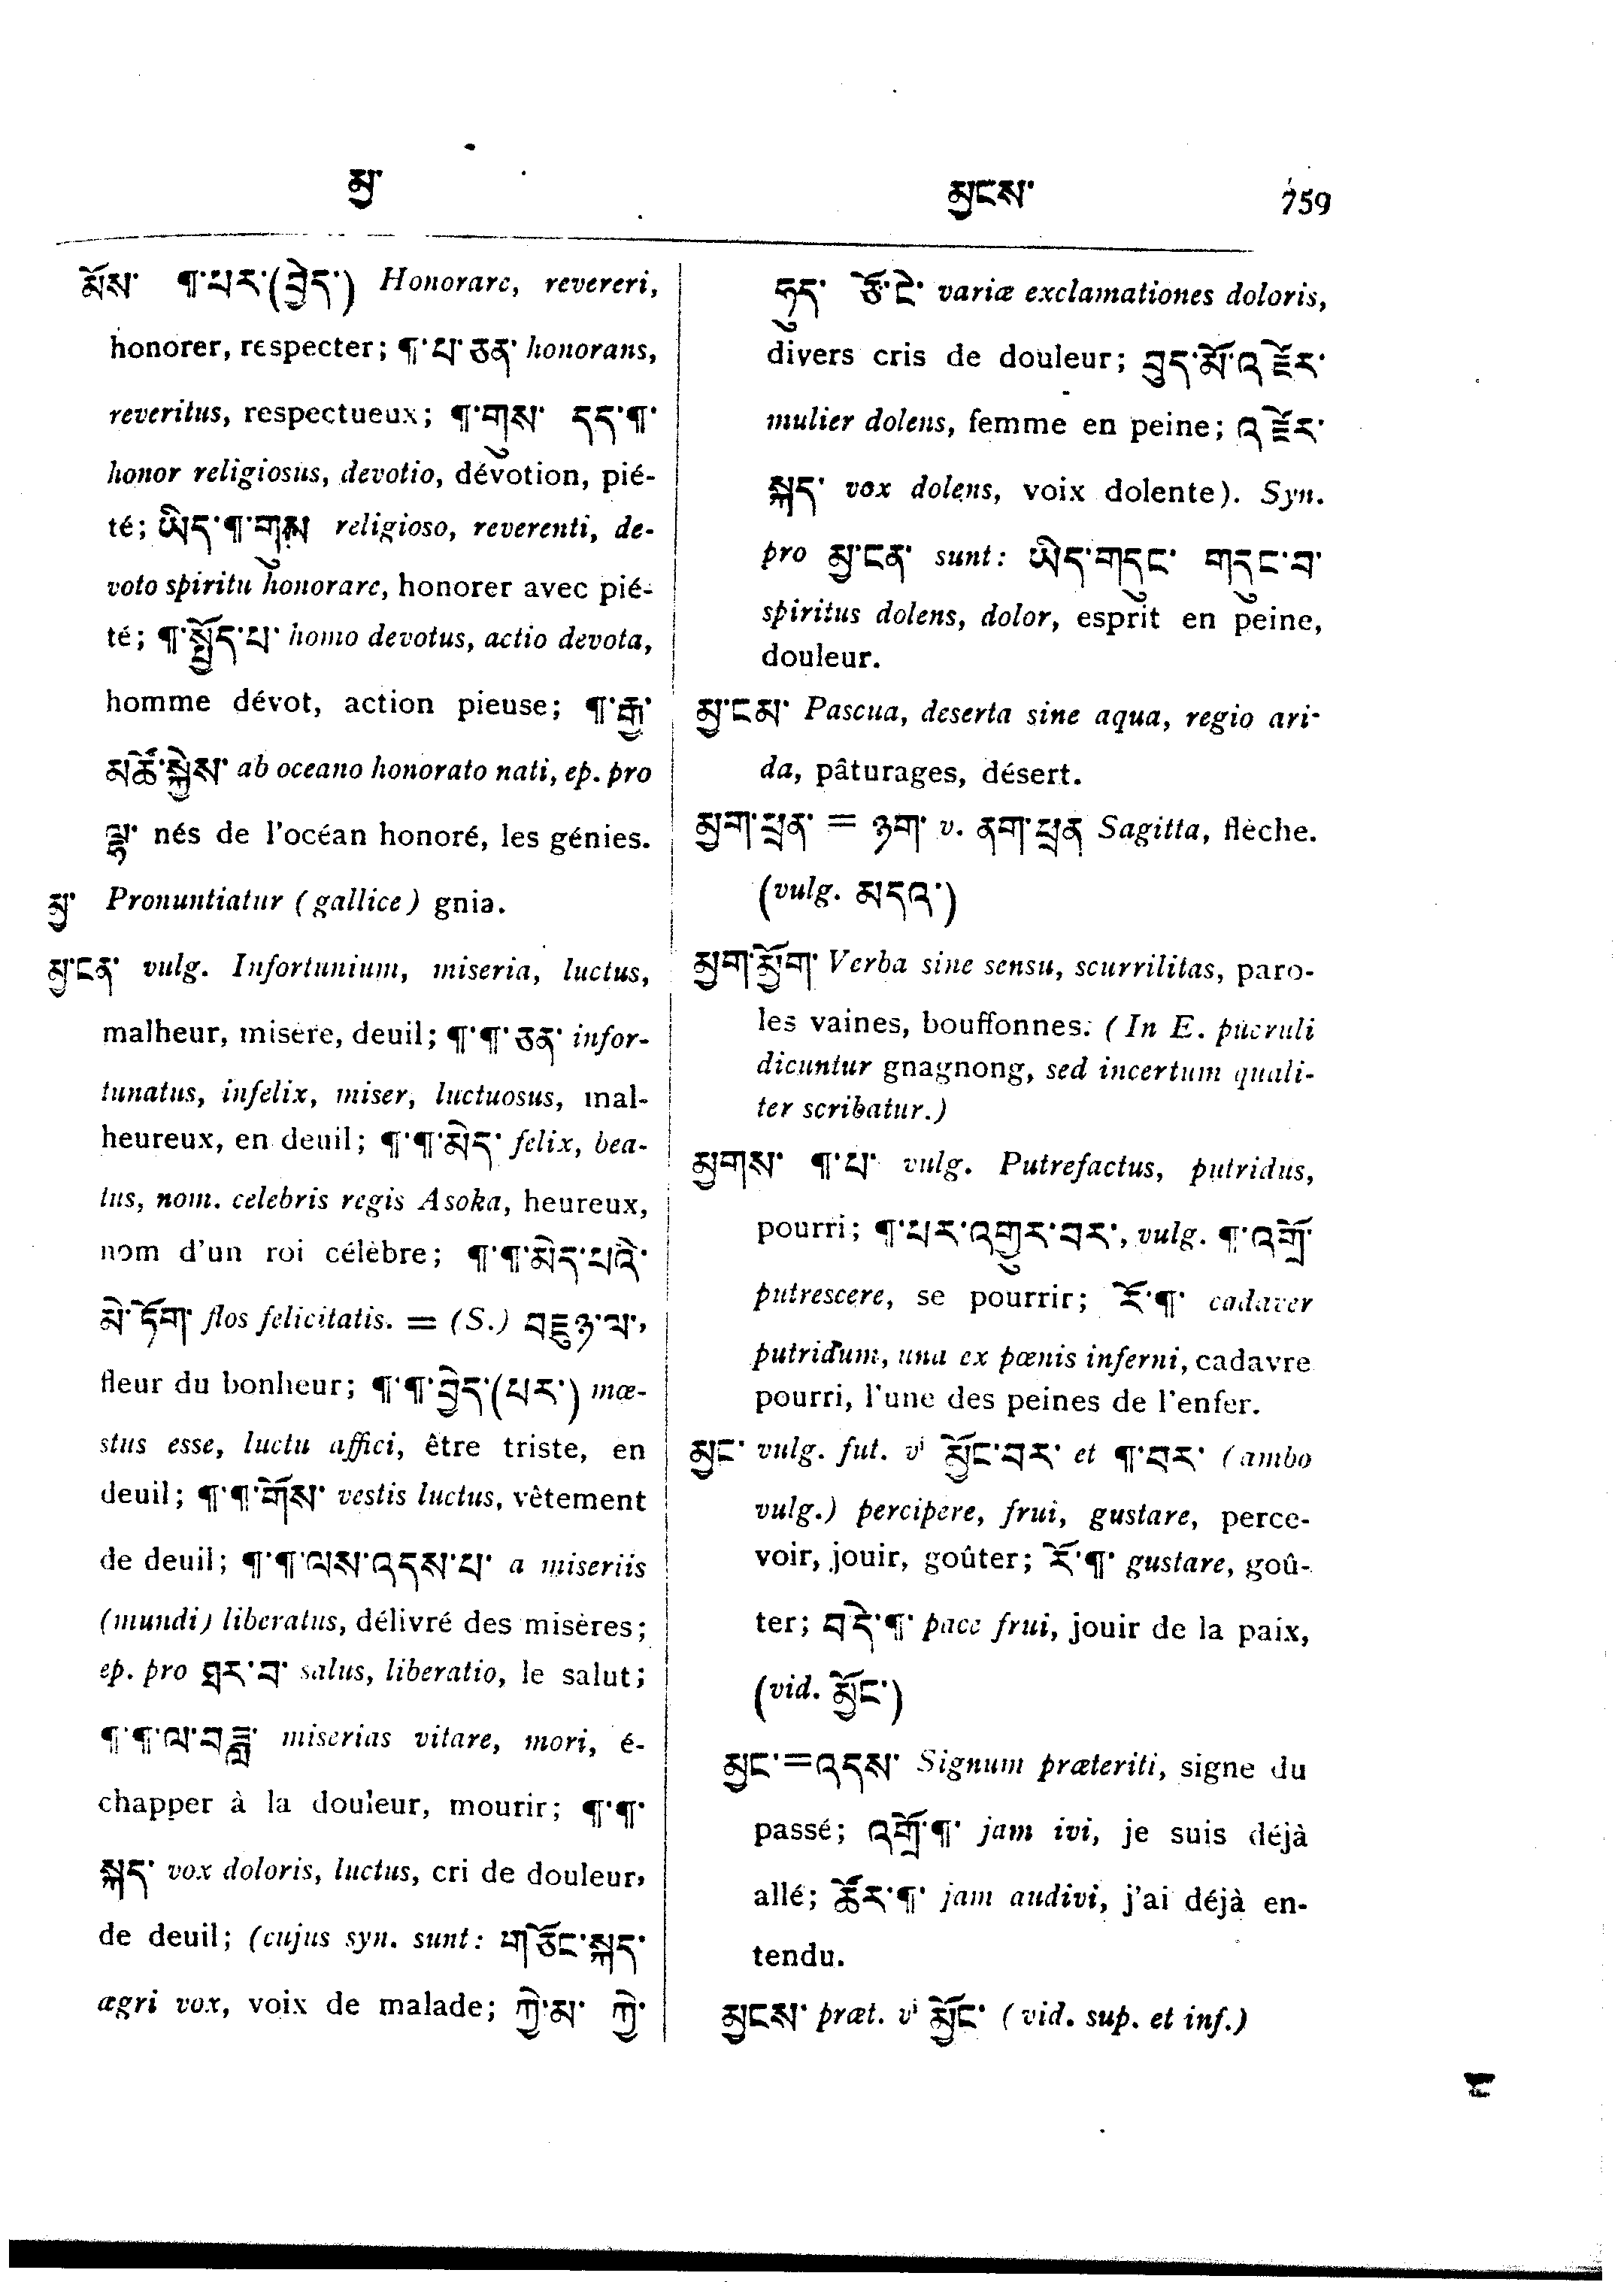 མྱ་ མྱངས་ 759
མོས་ ¶་པར་(བྱེད་) Honorare, revereri,
honorer, respecter; ¶་པ་ཅན་ honorans,
reveritus, respectueux; ¶་གུས་ དད་¶་
honor religiosus, devotio, dévotion, pié-
té; ཡིད་¶་གུས religioso, reverenti, de-
voto spiritu honorare, honorer avec pié-
té; ¶་སྤྱོད་པ་ homo devotus, actio devota,
homme dévot, action pieuse; ¶་རྒྱ་
མཚོ་སྐྱེས་ ab oceano honorato nati, ep. pro
ལྷ་ nés de l'océan honoré, les génies.
མྱ་ Pronuntiatur (gallice) gnia.
མྱ་ངན་ vulg. Infortunium, miseria, luctus,
malheur, misère, deuil; ¶་¶་ཅན་ infor-
tunatus, infelix, miser, luctuosus, mal-
heureux, en deuil; ¶་¶་མེད་ felix, bea-
tus, nom. celebris regis Asoka, heureux,
nom d'un roi célèbre; ¶་¶་མེད་པའི་
མེ་ཏོག་ flos felicitatis. = (S.) བཛུཉ་ལ་,
fleur du bonheur; ¶་¶་བྱེད་(པར་) mœ-
stus esse, luctu affici, être triste, en
deuil; ¶་¶་གོས་ vestis luctus, vêtement
de deuil; ¶་¶་ལས་འདས་པ་ a miseriis
(mundi) liberatus, délivré des misères;
ep. pro ཐར་བ་ salus, liberatio, le salut;
¶་¶་ལ་བཟླ་ miserias vitare, mori, é-
chapper à la douleur, mourir; ¶་¶་
སྐད་ vox doloris, luctus, cri de douleur,
de deuil; (cujus syn. sunt: གཅོང་སྐད་
ægri vox, voix de malade; ཀྱེ་མ་ ཀྱི་
ཧུད་ ཙོ་ངེ་ variæ exclamationes doloris,
divers cris de douleur; བུད་མོ་འཛེར་
mulier dolens, femme en peine; འཛེར་
སྐད་ vox dolens, voix dolente). Syn.
pro མྱ་ངན་ sunt: ཡིད་གདུང་ གདུང་བ་
spiritus dolens, dolor, esprit en peine,
douleur.
མྱ་ངམ་ Pascua, deserta sine aqua, regio ari-
da, pâturages, désert.
མྱག་ཕྲན་ = ཉག་ v. ནག་ཕྲན Sagitta, flèche.
(vulg. མདའ་)
མྱག་མྱོག་ Verba sine sensu, scurrilitas, paro-
les vaines, bouffonnes. (In E. pueruli
dicuntur gnagnong, sed incertum quali-
ter scribatur.)
མྱགས་ ¶་པ་ vulg. Putrefactus, putridus,
pourri; ¶་པར་འགྱུར་བར་, vulg. ¶་འགྲོ་
putrescere, se pourrir; རོ་¶་ cadaver
putridum, una ex pœnis inferni, cadavre
pourri, l'une des peines de l'enfer.
མྱང་ vulg. fut. vⁱ མྱོང་བར་ et ¶་བར་ (ambo
vulg.) percipere, frui, gustare, perce-
voir, jouir, goûter; རོ་¶་ gustare, goû-
ter; བདེ་¶་ pace frui, jouir de la paix,
(vid. མྱོང་)
མྱང་=འདས་ Signum præteriti, signe du
passé; འགྲོ་¶་ jam ivi, je suis déjà
allé; ཚོར་¶་ jam audivi, j'ai déjà en-
tendu.
མྱངས་ præt. vⁱ མྱོང་ (vid. sup. et inf.)